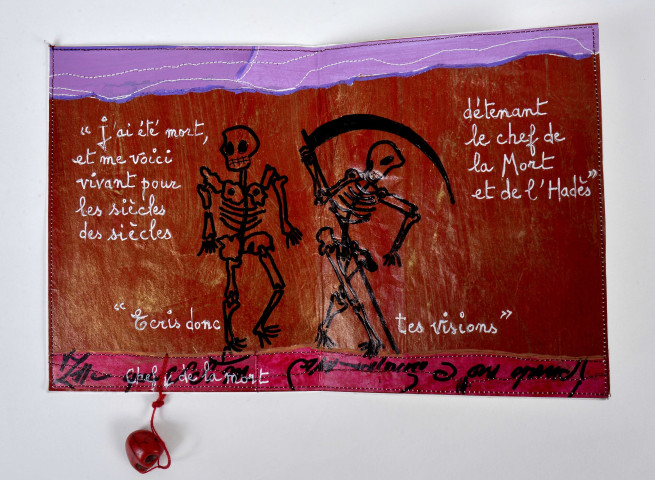 “ J'ai été mort,
et me voici
vivant pour
les siècles
des siècles
détenant
le chef de
la Mort
et de l'Hadès”
“Ecris donc
tes visions”
Chef de la mort